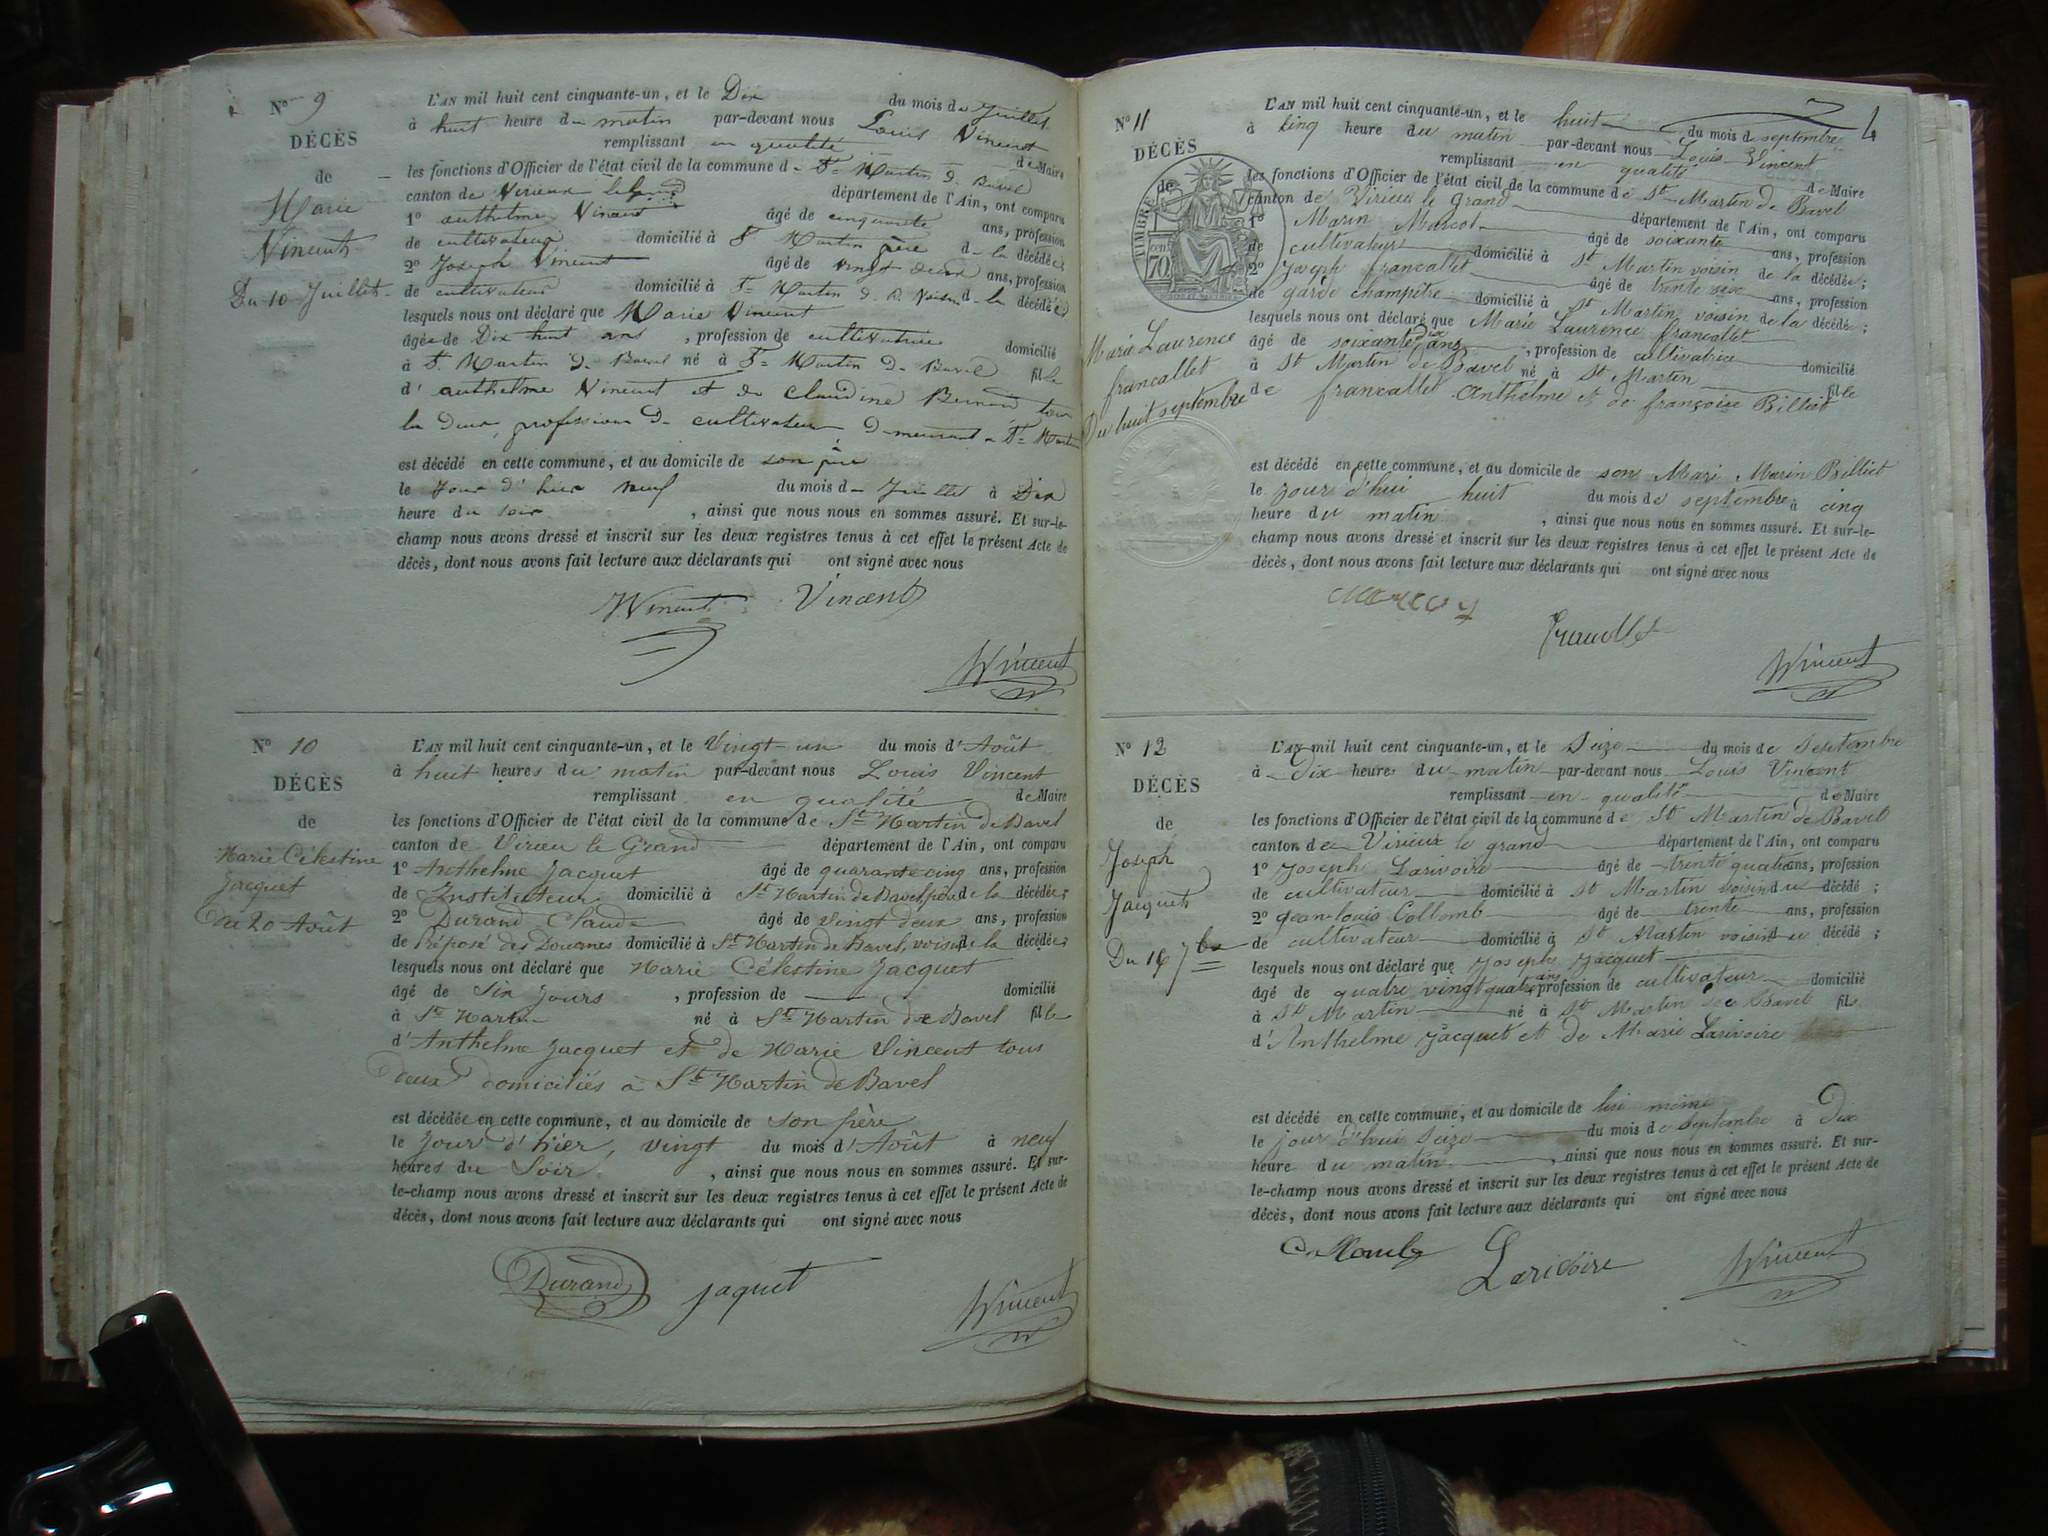 N° 9
DÉCÈS
de
Marie
Vincent
Du 10 Juillet
L'AN mil huit cent cinquante-un, et le Dix du mois de Juillet
à huit heure du matin par-devant nous Louis Vincent
remplissant en qualité de Maire
les fonctions d'Officier de l'état civil de la commune de St Martin de Bavel
canton de Virieux le Grand département de l'Ain, ont comparu
1° anthelme Vincent âgé de cinquante ans, profession
de cultivateur domicilié à St Martin père de la décédée
2° Joseph Vincent âgé de vingt deux ans, profession
de cultivateur domicilié à St Martin d. B. Voisin de la décédée
lesquels nous ont déclaré que Marie Vincent
âgée de Dix huit ans, profession de cultivatrice domicilié
à St Martin de Bavel né à St Martin de Bavel fille
d'anthelme Vincent et de Claudine Bernard tous
les deux profession de cultivateur demeurant à St Martin
est décédé en cette commune, et au domicile de son père
le Jour d'hier neuf du mois de Juillet à Dix
heure du soir, ainsi que nous nous en sommes assuré. Et sur-le-
champ nous avons dressé et inscrit sur les deux registres tenus à cet effet le présent Acte de
décès, dont nous avons fait lecture aux déclarants qui ont signé avec nous
Vincent Vincent
Vincent
N° 10
DÉCÈS
de
Marie Célestine
Jacquet
du 20 Août
L'AN mil huit cent cinquante-un, et le Vingt-un du mois d'Août
à huit heures du matin par-devant nous Louis Vincent
remplissant en qualité de Maire
les fonctions d'Officier de l'état civil de la commune de St Martin de Bavel
canton de Virieu le Grand département de l'Ain, ont comparu
1° Anthelme Jacquet âgé de quarante cinq ans, profession
de Instituteur domicilié à St Martin de Bavel, père de la décédée;
2° Durand Claude âgé de vingt deux ans, profession
de Préposé des Douanes domicilié à St Martin de Bavel, voisin de la décédée;
lesquels nous ont déclaré que Marie Célestine Jacquet
âgé de Six Jours, profession de — domicilié
à St Martin né à St Martin de Bavel fille
d'Anthelme Jacquet et de Marie Vincent tous
deux domiciliés à St Martin de Bavel
est décédée en cette commune, et au domicile de son père
le Jour d'hier, vingt du mois d'Août à neuf
heures du Soir, ainsi que nous nous en sommes assuré. Et sur-
le-champ nous avons dressé et inscrit sur les deux registres tenus à cet effet le présent Acte de
décès, dont nous avons fait lecture aux déclarants qui ont signé avec nous
Durand Jaquet
Vincent
4
N° 11
DÉCÈS
de
TIMBRE
70
Marie Laurence
francallet
Du huit septembre
L'AN mil huit cent cinquante-un, et le huit du mois de septembre
à cinq heure du matin par-devant nous Louis Vincent
remplissant en qualité de Maire
les fonctions d'Officier de l'état civil de la commune de St Martin de Bavel
canton de Virieu le Grand département de l'Ain, ont comparu
1° Marin Marcot âgé de soixante ans, profession
de cultivateur domicilié à St Martin voisin de la décédée;
2° Joseph francallet âgé de trente six ans, profession
de garde champêtre domicilié à St Martin voisin de la décédée;
lesquels nous ont déclaré que Marie Laurence francallet
âgé de soixante dix ans, profession de cultivatrice domicilié
à St Martin de Bavel né à St Martin fille
de francallet Anthelme et de françoise Billiet
est décédé en cette commune, et au domicile de son Mari Marin Billiet
le jour d'hui huit du mois de septembre à cinq
heure du matin, ainsi que nous nous en sommes assuré. Et sur-le-
champ nous avons dressé et inscrit sur les deux registres tenus à cet effet le présent Acte de
décès, dont nous avons fait lecture aux déclarants qui ont signé avec nous
Vincent
N° 12
DÉCÈS
de
Joseph
Jacquet
Du 16 7bre
L'AN mil huit cent cinquante-un, et le Seize du mois de Septembre
à Dix heures du matin par-devant nous Louis Vincent
remplissant en qualité de Maire
les fonctions d'Officier de l'état civil de la commune de St Martin de Bavel
canton de Virieux le grand département de l'Ain, ont comparu
1° Joseph Larivoire âgé de trente quatre ans, profession
de cultivateur domicilié à St Martin voisin du décédé;
2° Jean Louis Collomb âgé de trente ans, profession
de cultivateur domicilié à St Martin voisin du décédé;
lesquels nous ont déclaré que Joseph Jacquet
âgé de quatre vingt quatre ans profession de cultivateur domicilié
à St Martin né à St Martin de Bavel fils
d'Anthelme Jacquet et de Marie Larivoire
est décédé en cette commune, et au domicile de lui même
le jour d'hui Seize du mois de septembre à Dix
heure du matin, ainsi que nous nous en sommes assuré. Et sur-
le-champ nous avons dressé et inscrit sur les deux registres tenus à cet effet le présent Acte de
décès, dont nous avons fait lecture aux déclarants qui ont signé avec nous
Collomb Larivoire Vincent